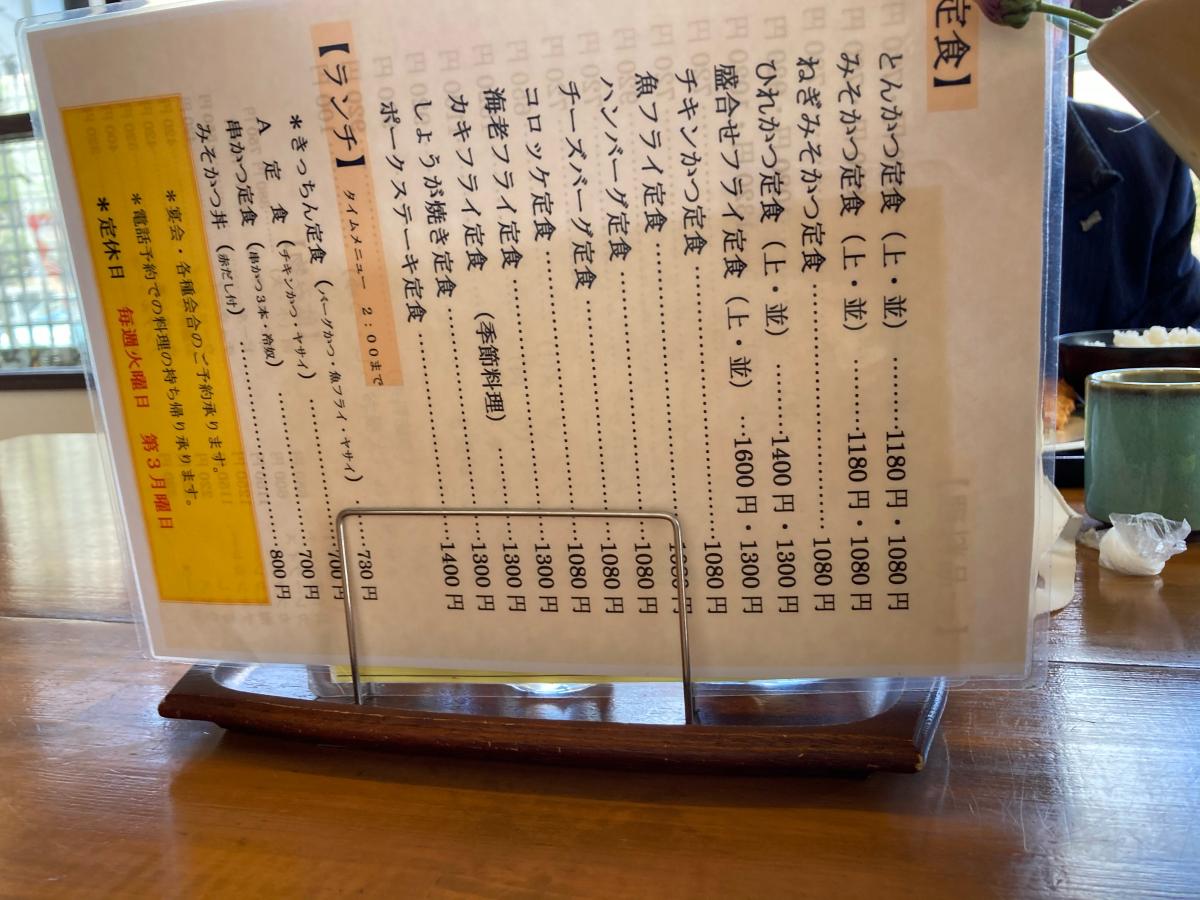 定食】
とんかつ定食（上・並）………1180円・1080円
みそかつ定食（上・並）………1180円・1080円
ねぎみそかつ定食………1080円
ひれかつ定食（上・並）………1400円・1300円
盛合せフライ定食（上・並）…1600円・1300円
チキンかつ定食………1080円
魚フライ定食………1080円
ハンバーグ定食………1080円
チーズバーグ定食………1080円
コロッケ定食………1080円
海老フライ定食………1300円
カキフライ定食（季節料理）………1300円
しょうが焼き定食………1300円
ポークステーキ定食………1400円
【ランチ】タイムメニュー 2：00まで
＊きっちん定食（バーグかつ・魚フライ・ヤサイ）………730円
A定食（チキンかつ・ヤサイ）………700円
串かつ定食（串かつ3本・冷奴）………700円
みそかつ丼（赤だし付）………800円
＊宴会・各種会合のご予約承ります。
＊電話予約での料理の持ち帰り承ります。
＊定休日 毎週火曜日 第3月曜日